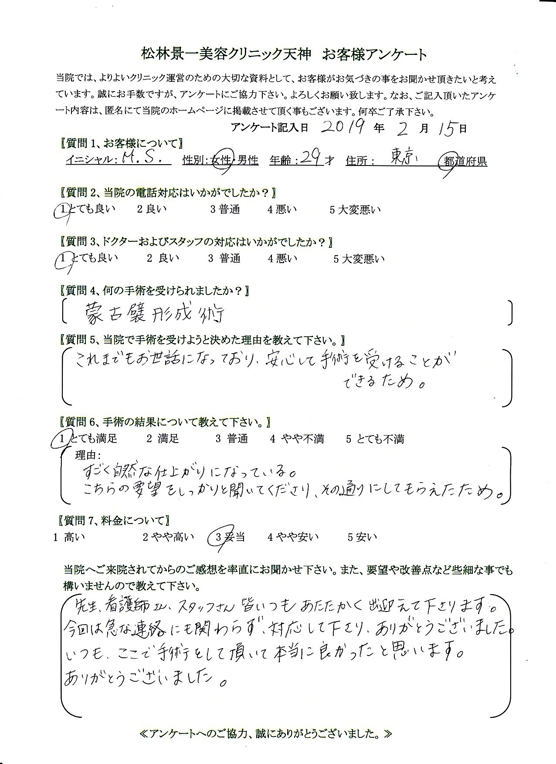 松林景一美容クリニック天神 お客様アンケート
当院では、よりよいクリニック運営のための大切な資料として、お客様がお気づきの事をお聞かせ頂きたいと考え
ています。誠にお手数ですが、アンケートにご協力下さい。よろしくお願い致します。なお、ご記入頂いたアンケ
ート内容は、匿名にて当院のホームページに掲載させて頂く事もございます。何卒ご了承下さい。
アンケート記入日 2019 年 2 月 15日
【質問1、お客様について】
イニシャル: M.S. 性別:女性・男性 年齢:29才 住所: 東京 都道府県
【質問2、当院の電話対応はいかがでしたか?】
1とても良い 2 良い 3 普通 4 悪い 5 大変悪い
【質問3、ドクターおよびスタッフの対応はいかがでしたか?】
1とても良い 2 良い 3 普通 4 悪い 5 大変悪い
【質問4、何の手術を受けられましたか?】
蒙古襞形成術
【質問5、当院で手術を受けようと決めた理由を教えて下さい。】
これまでもお世話になっており、安心して手術を受けることが
できるため。
【質問6、手術の結果について教えて下さい。】
1 とても満足 2 満足 3 普通 4 やや不満 5 とても不満
理由:
すごく自然な仕上がりになっている。
こちらの要望をしっかりと聞いてくださり、その通りにしてもらえたため。
【質問7、料金について】
1 高い 2 やや高い 3 妥当 4 やや安い 5 安い
当院へご来院されてからのご感想を率直にお聞かせ下さい。また、要望や改善点など些細な事でも
構いませんので教えて下さい。
先生、看護師さん、スタッフさん 皆いつもあたたかく出迎えて下さります。
今回は急な連絡にも関わらず、対応して下さり、ありがとうございました。
いつも、ここで手術をして頂いて本当に良かったと思います。
ありがとうございました。
≪アンケートへのご協力、誠にありがとうございました。≫